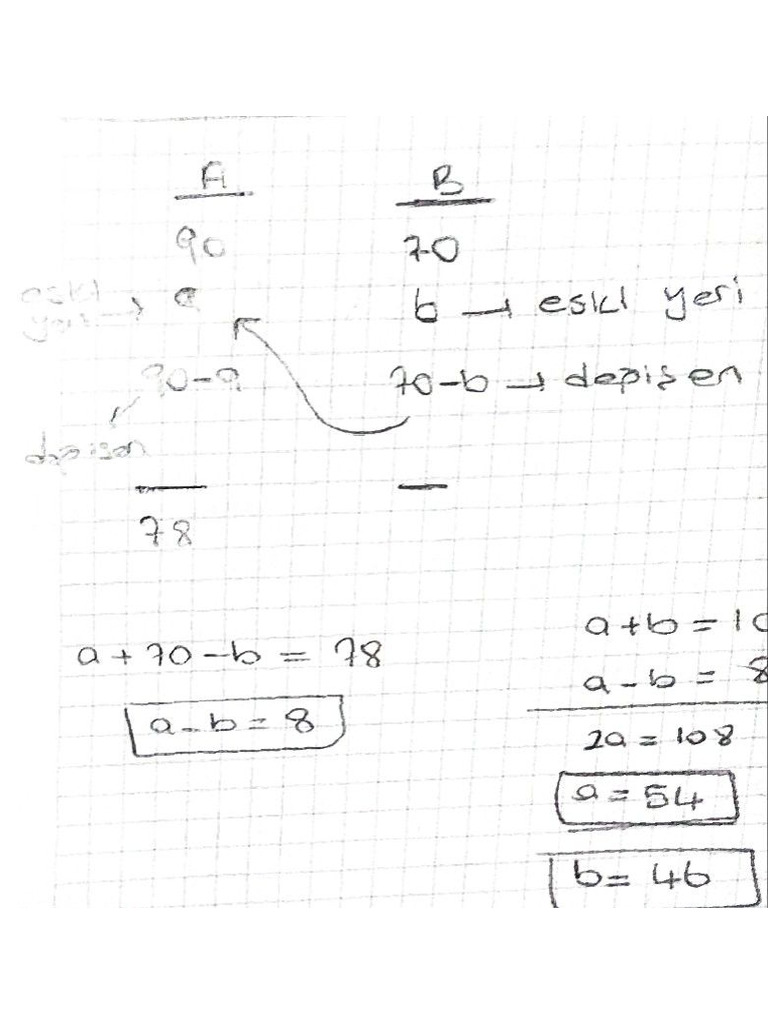 A B
90 70
eski yeri → a b → eski yeri
90-a 70-b → depişen
depişen
78
a + 70 - b = 78
a - b = 8
a + b = 10
a - b = 8
2a = 108
a = 54
b = 46